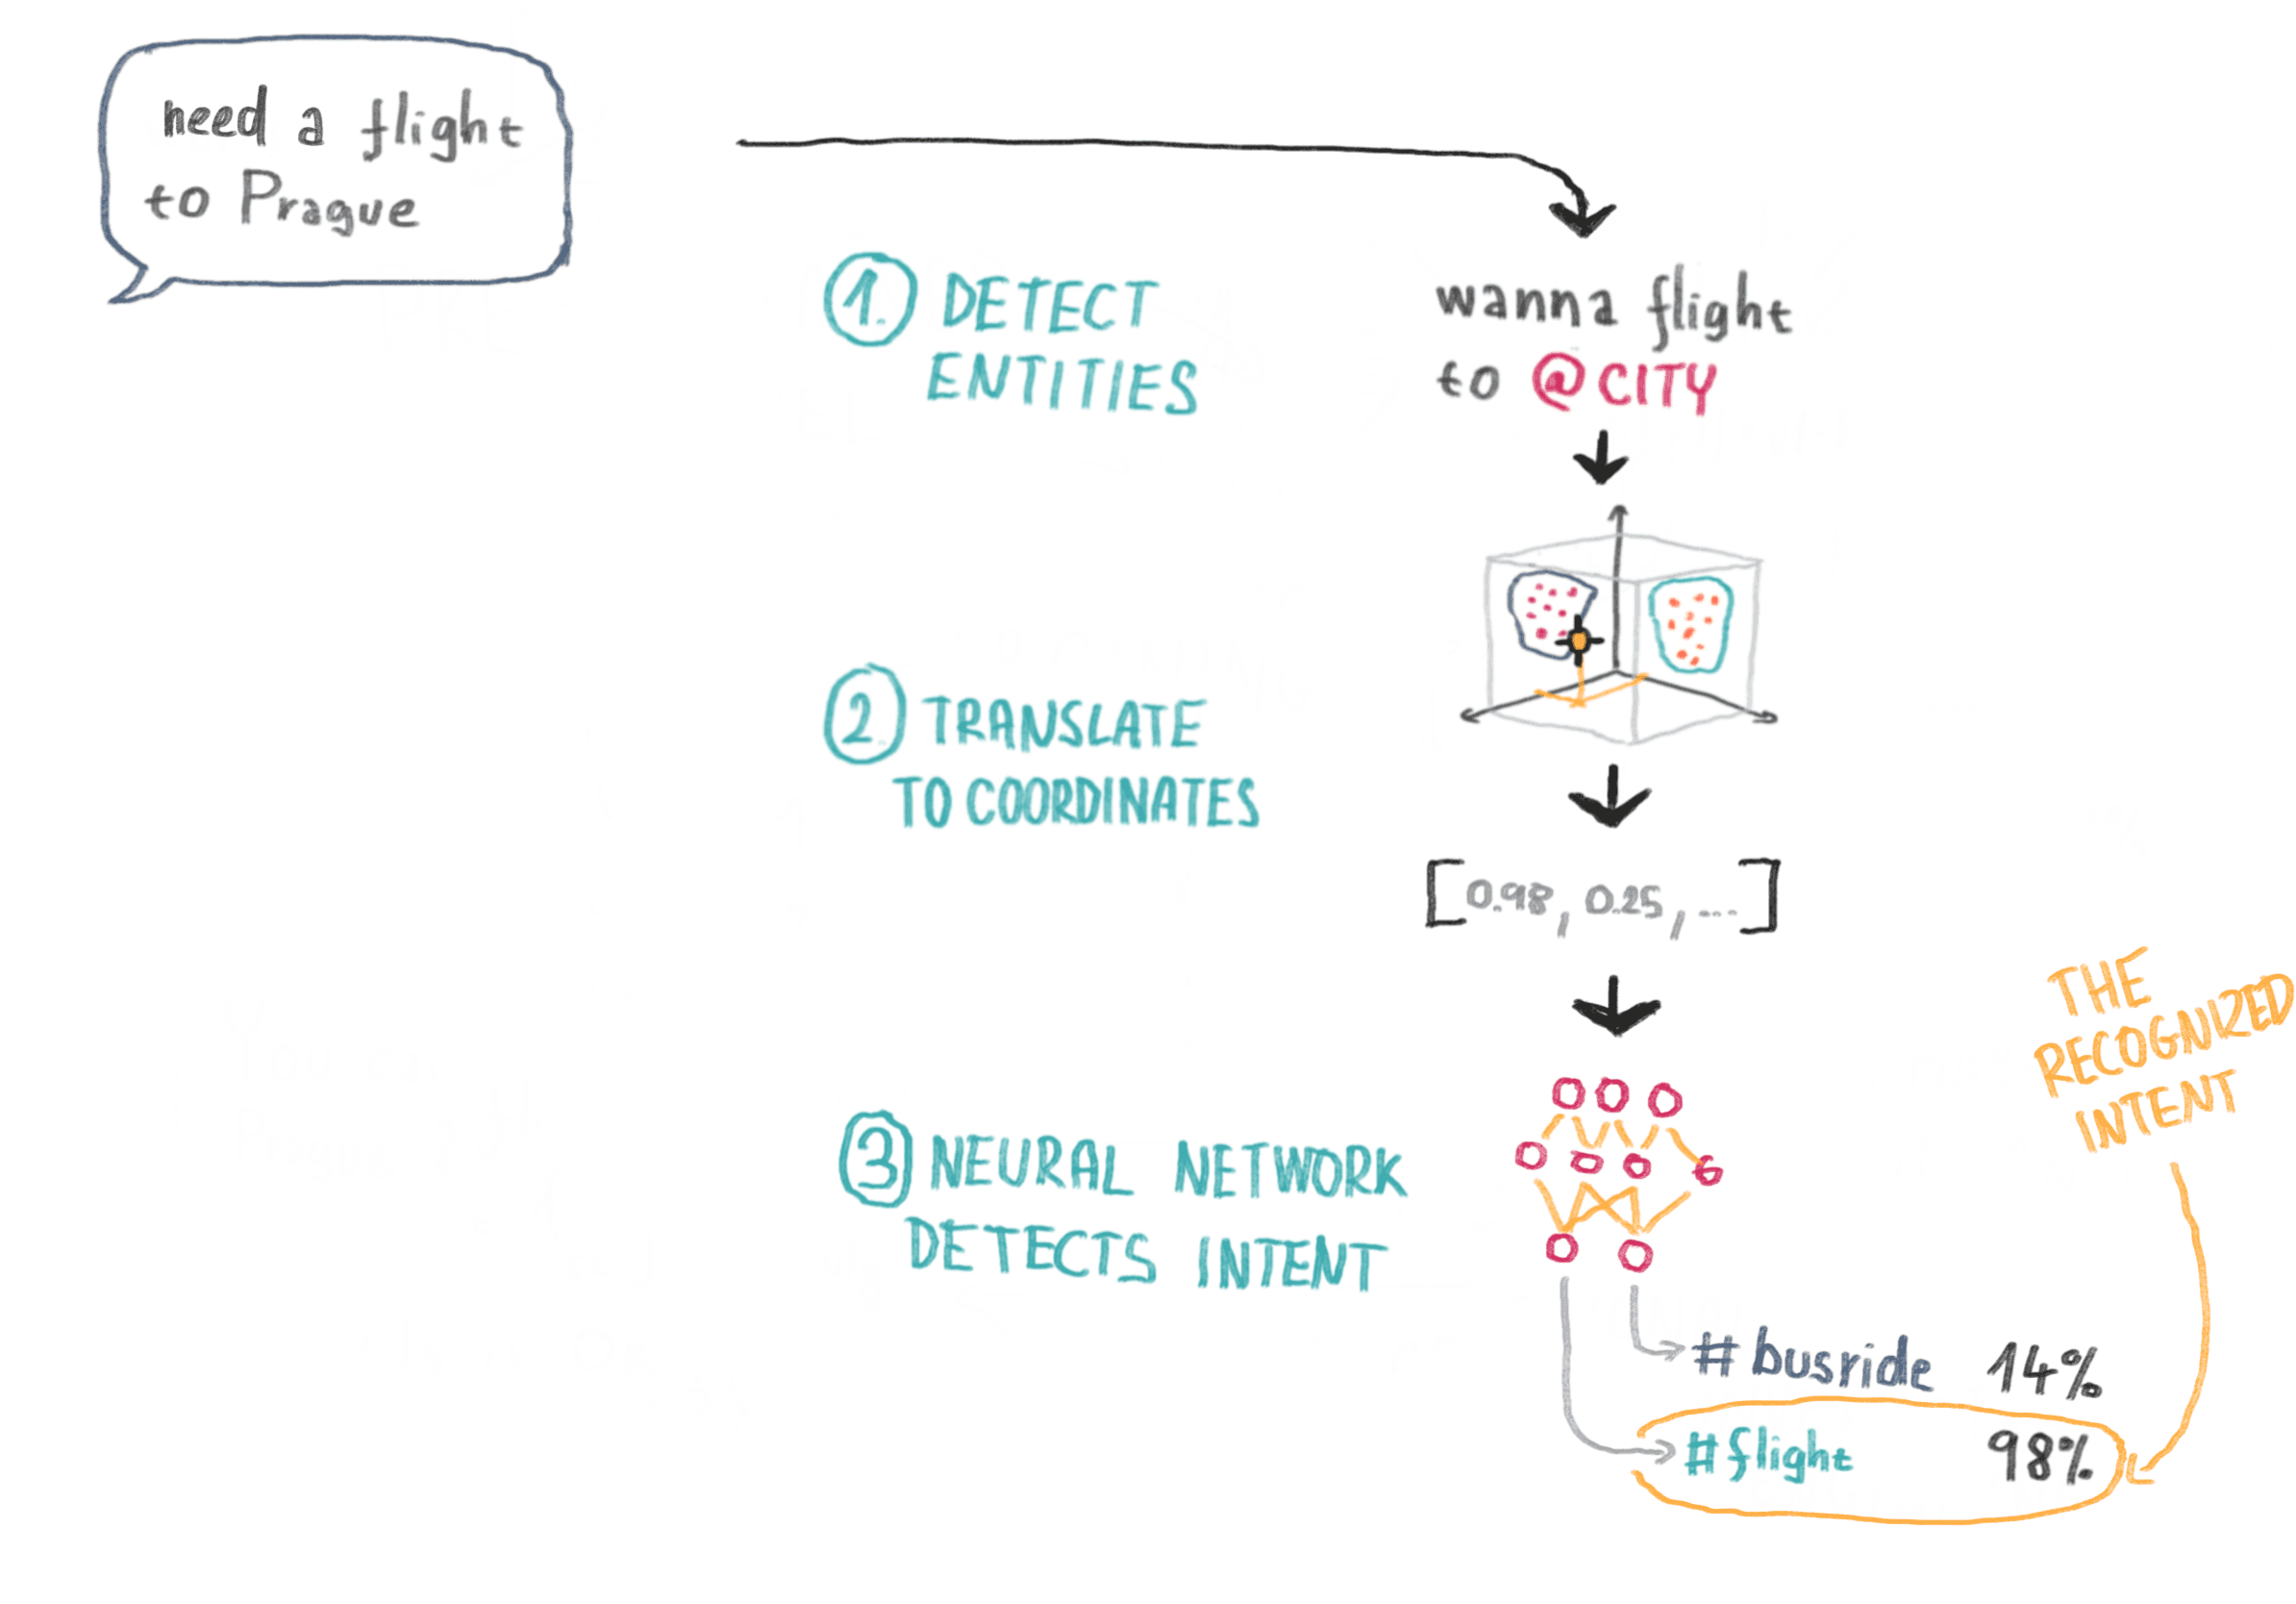 need a flight
to Prague
1. DETECT
ENTITIES
wanna flight
to @CITY
2. TRANSLATE
TO COORDINATES
[0.98, 0.25, ...]
3 NEURAL NETWORK
DETECTS INTENT
THE
RECOGNIZED
INTENT
#busride 14%
#flight 98%